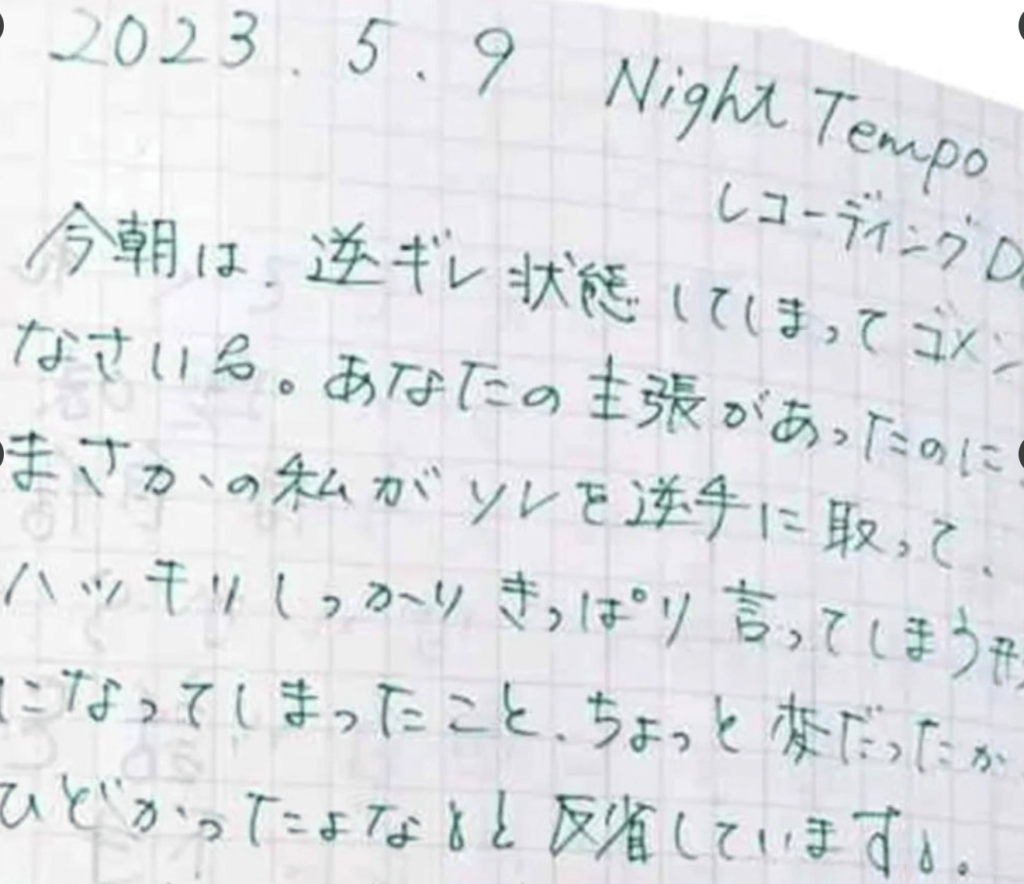 2023.5.9 Night Tempo
レコーディングD
今朝は、逆ギレ状態してしまってゴメン
なさい。あなたの主張があったのに
まさかの私がソレを逆手に取って、
ハッキリしっかりきっぱり言ってしまう形
になってしまったこと、ちょっと変だったか
ひどかったよなと反省しています。